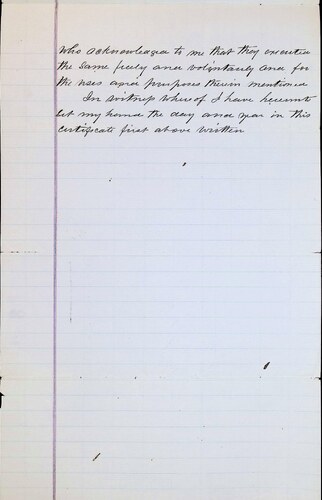 who acknowledged to me that they executed
the same freely and voluntarily and for
the uses and purposes therein mentioned
In witness whereof I have hereunto
set my hand the day and year in this
certificate first above written